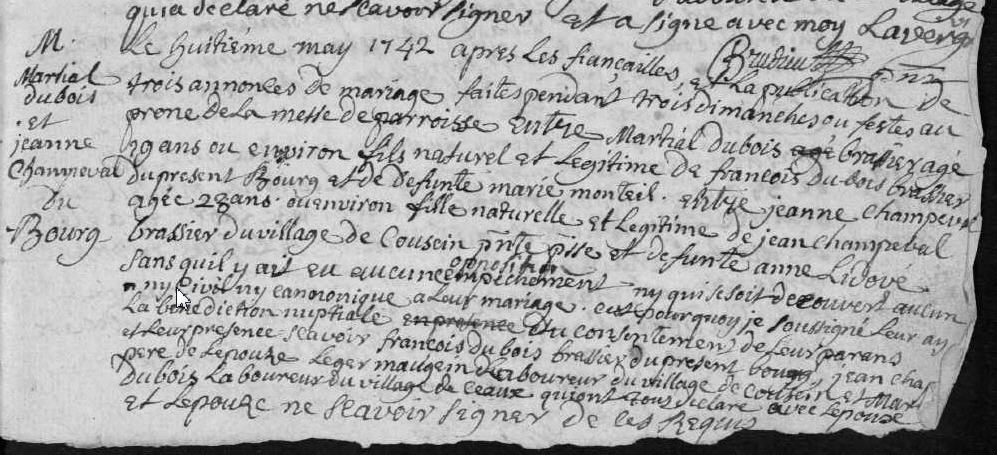 qui a declaré ne scavoir signer et a signe avec moy Laverg
M. Le huitiéme may 1742 apres Les fiançailles, et La publication de
Martial dubois et jeanne Champeval Du Bourg
trois annonces de mariage faites pendant trois dimanches ou festes au
prone de La messe de parroisse Entre Martial dubois agé brassier agé
29 ans ou environ fils naturel et Legitime de francois dubois brassier
du present Bourg et de defunte marie monteil. entre jeanne Champeval
agée 28 ans ou environ fille naturelle et Legitime de jean champeval
brassier du village de Cousein pnte psse et defunte anne Lidove
sans quil y ait eu aucune opposition empechement ny qui se soit decouvert aucun
ny civil ny canonique a Leur mariage. cest pourquoy je soussigné Leur ay
La benediction nuptiale en presence du consentement de Leur parans
et Leur presence scavoir francois dubois brassier du present bourg, jean cha
pere de Lepouze Leger maugein Laboureur du village de Cousein et Mar
dubois Laboureur du village de Ceaux qui ont tous declaré avec Lepoux
et Lepouze ne scavoir signer de ces Requis